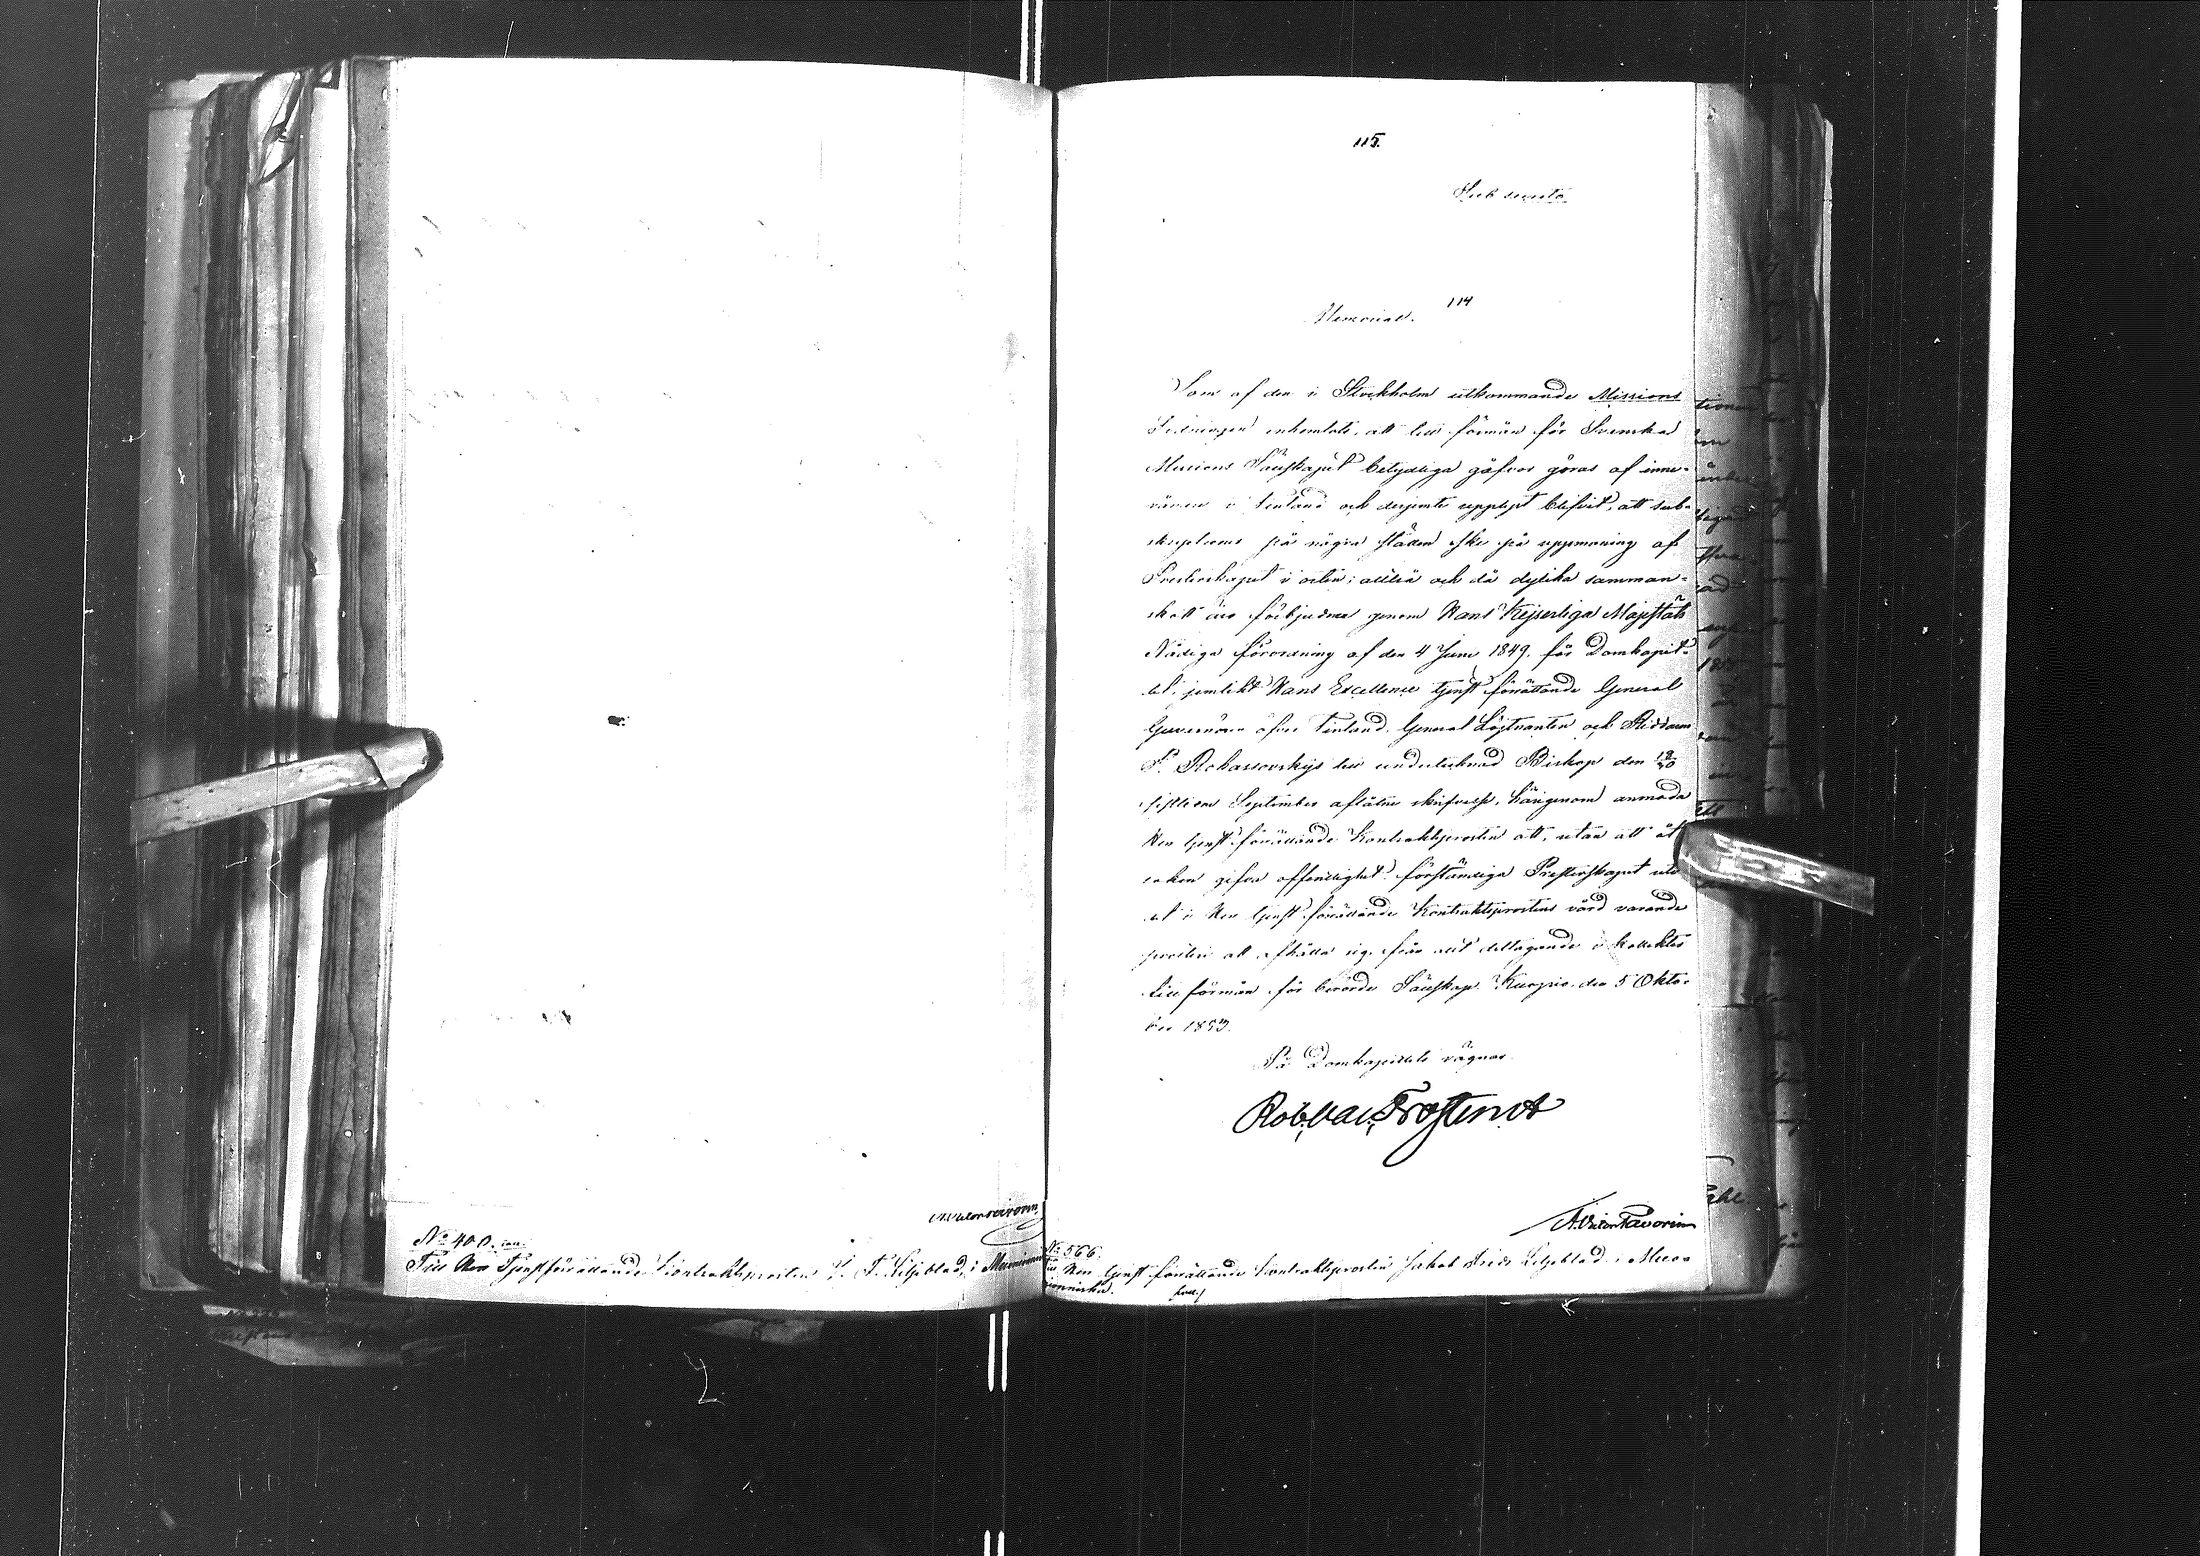 N:o 400.
Till Herr Tjenstförrättande Kontraktsprosten J. F. Liljeblad, i
115.
Sub secreto.
114
Memorial.
Som af den i Stockholm utkommande Missions
Tidningen inhemtats, att till förmån för Svenska
Missions Sällskapet betydliga gåfvor göras af inne-
vånare i Finland och derjemte upplyst blifvit, att sub-
skriptions på några ställen ske på uppmaning af
Presterskapet i orten; alltså och då dylika samman-
skott äro förbjudna genom Hans Kejserliga Majestäts
Nådiga förordning af den 4 Juni 1849, får Domkapit-
let, jemlikt Hans Excellence tjenst förrättande General
Guvernören öfver Finland, General Löjtnanten och Riddaren
P. Rokassovskijs till undertecknad Biskop den 18/30
sistlidne September aflåtne skrifvelse, härigenom anmoda
Herr tjenst förrättande Kontraktsprosten att, utan att åt
saken gifva offentlighet, förständiga Presterskapet
i Herr tjenst förrättande Kontraktsprostens vård varande
prosteri att afhålla sig från allt deltagande i kollekter
till förmån för berörde Sällskap. Kuopio, den 5 Okto-
ber 1853.
På Domkapitlets vägnar
Rob. Val. Frosterus
A. Victor Favorin
N:o 566.
Till Herr tjenst förrättande Kontraktsprosten Jakob Fredr. Liljeblad i